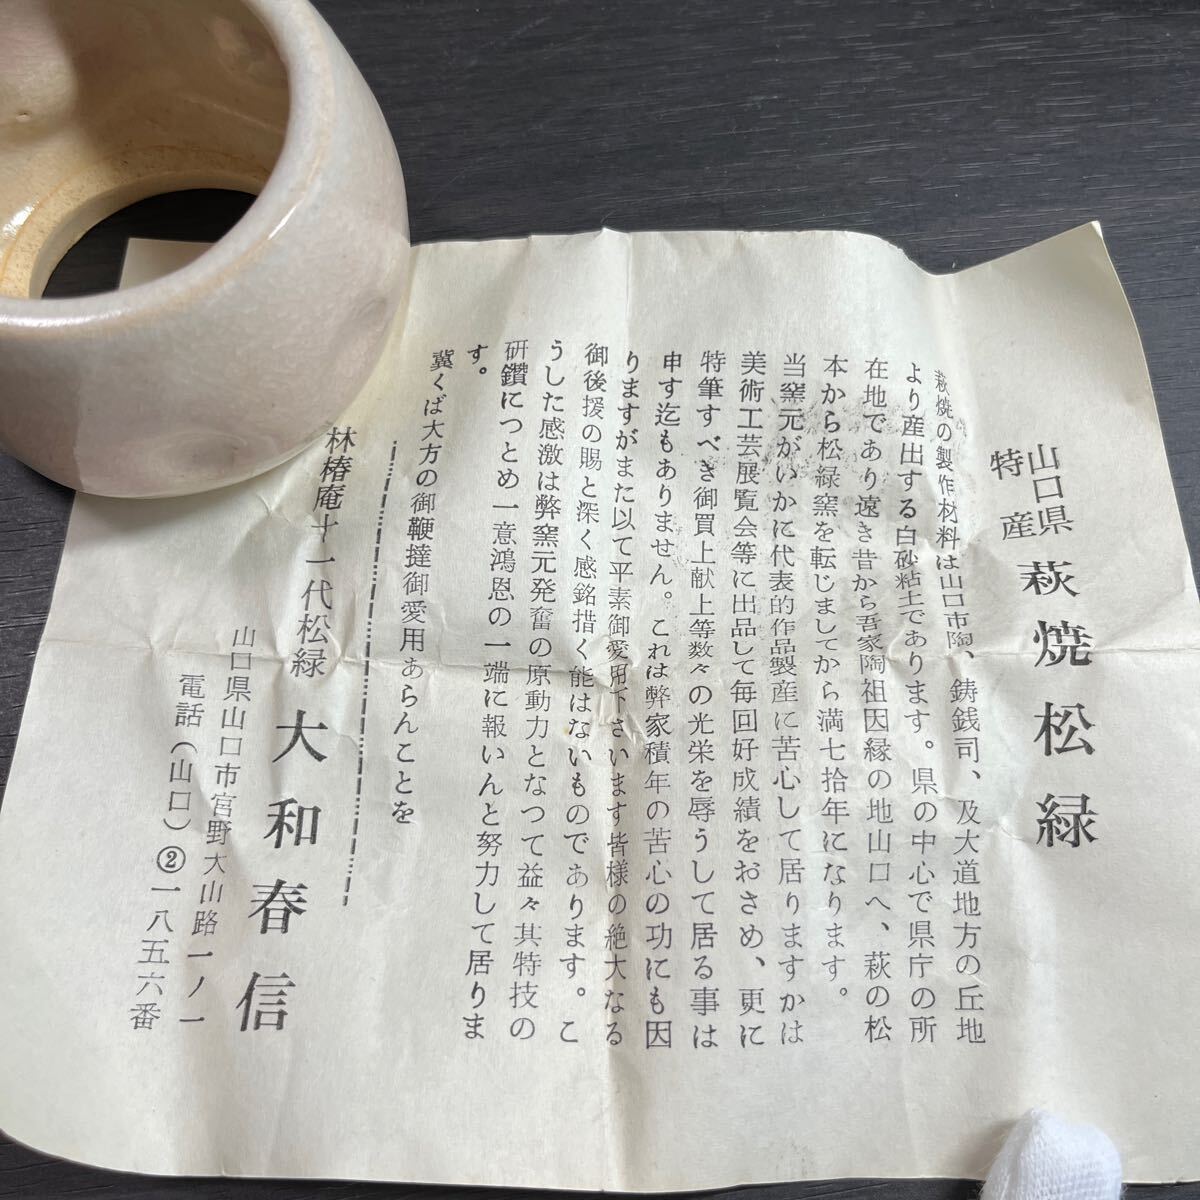 山口県
特産
萩焼松緑
萩焼の製作材料は山口市陶、鋳銭司、及大道地方の丘地
より産出する白砂粘土であります。県の中心で県庁の所
在地であり遠き昔から吾家陶祖因縁の地山口へ、萩の松
本から松緑窯を転じましてから満七拾年になります。
当窯元がいかに代表的作品製産に苦心して居りますかは
美術工芸展覧会等に出品して毎回好成績をおさめ、更に
特筆すべき御買上献上等数々の光栄を辱うして居る事は
申す迄もありません。これは弊家積年の苦心の功にも因
りますがまた以て平素御愛用下さいます皆様の絶大なる
御後援の賜と深く感銘措く能はないものであります。こ
うした感激は弊窯元発奮の原動力となつて益々其特技の
研鑽につとめ一意鴻恩の一端に報いんと努力して居りま
す。
冀くば大方の御鞭撻御愛用あらんことを
林椿庵十一代松緑 大和春信
山口県山口市宮野大山路一ノ一
電話(山口)②一八五六番